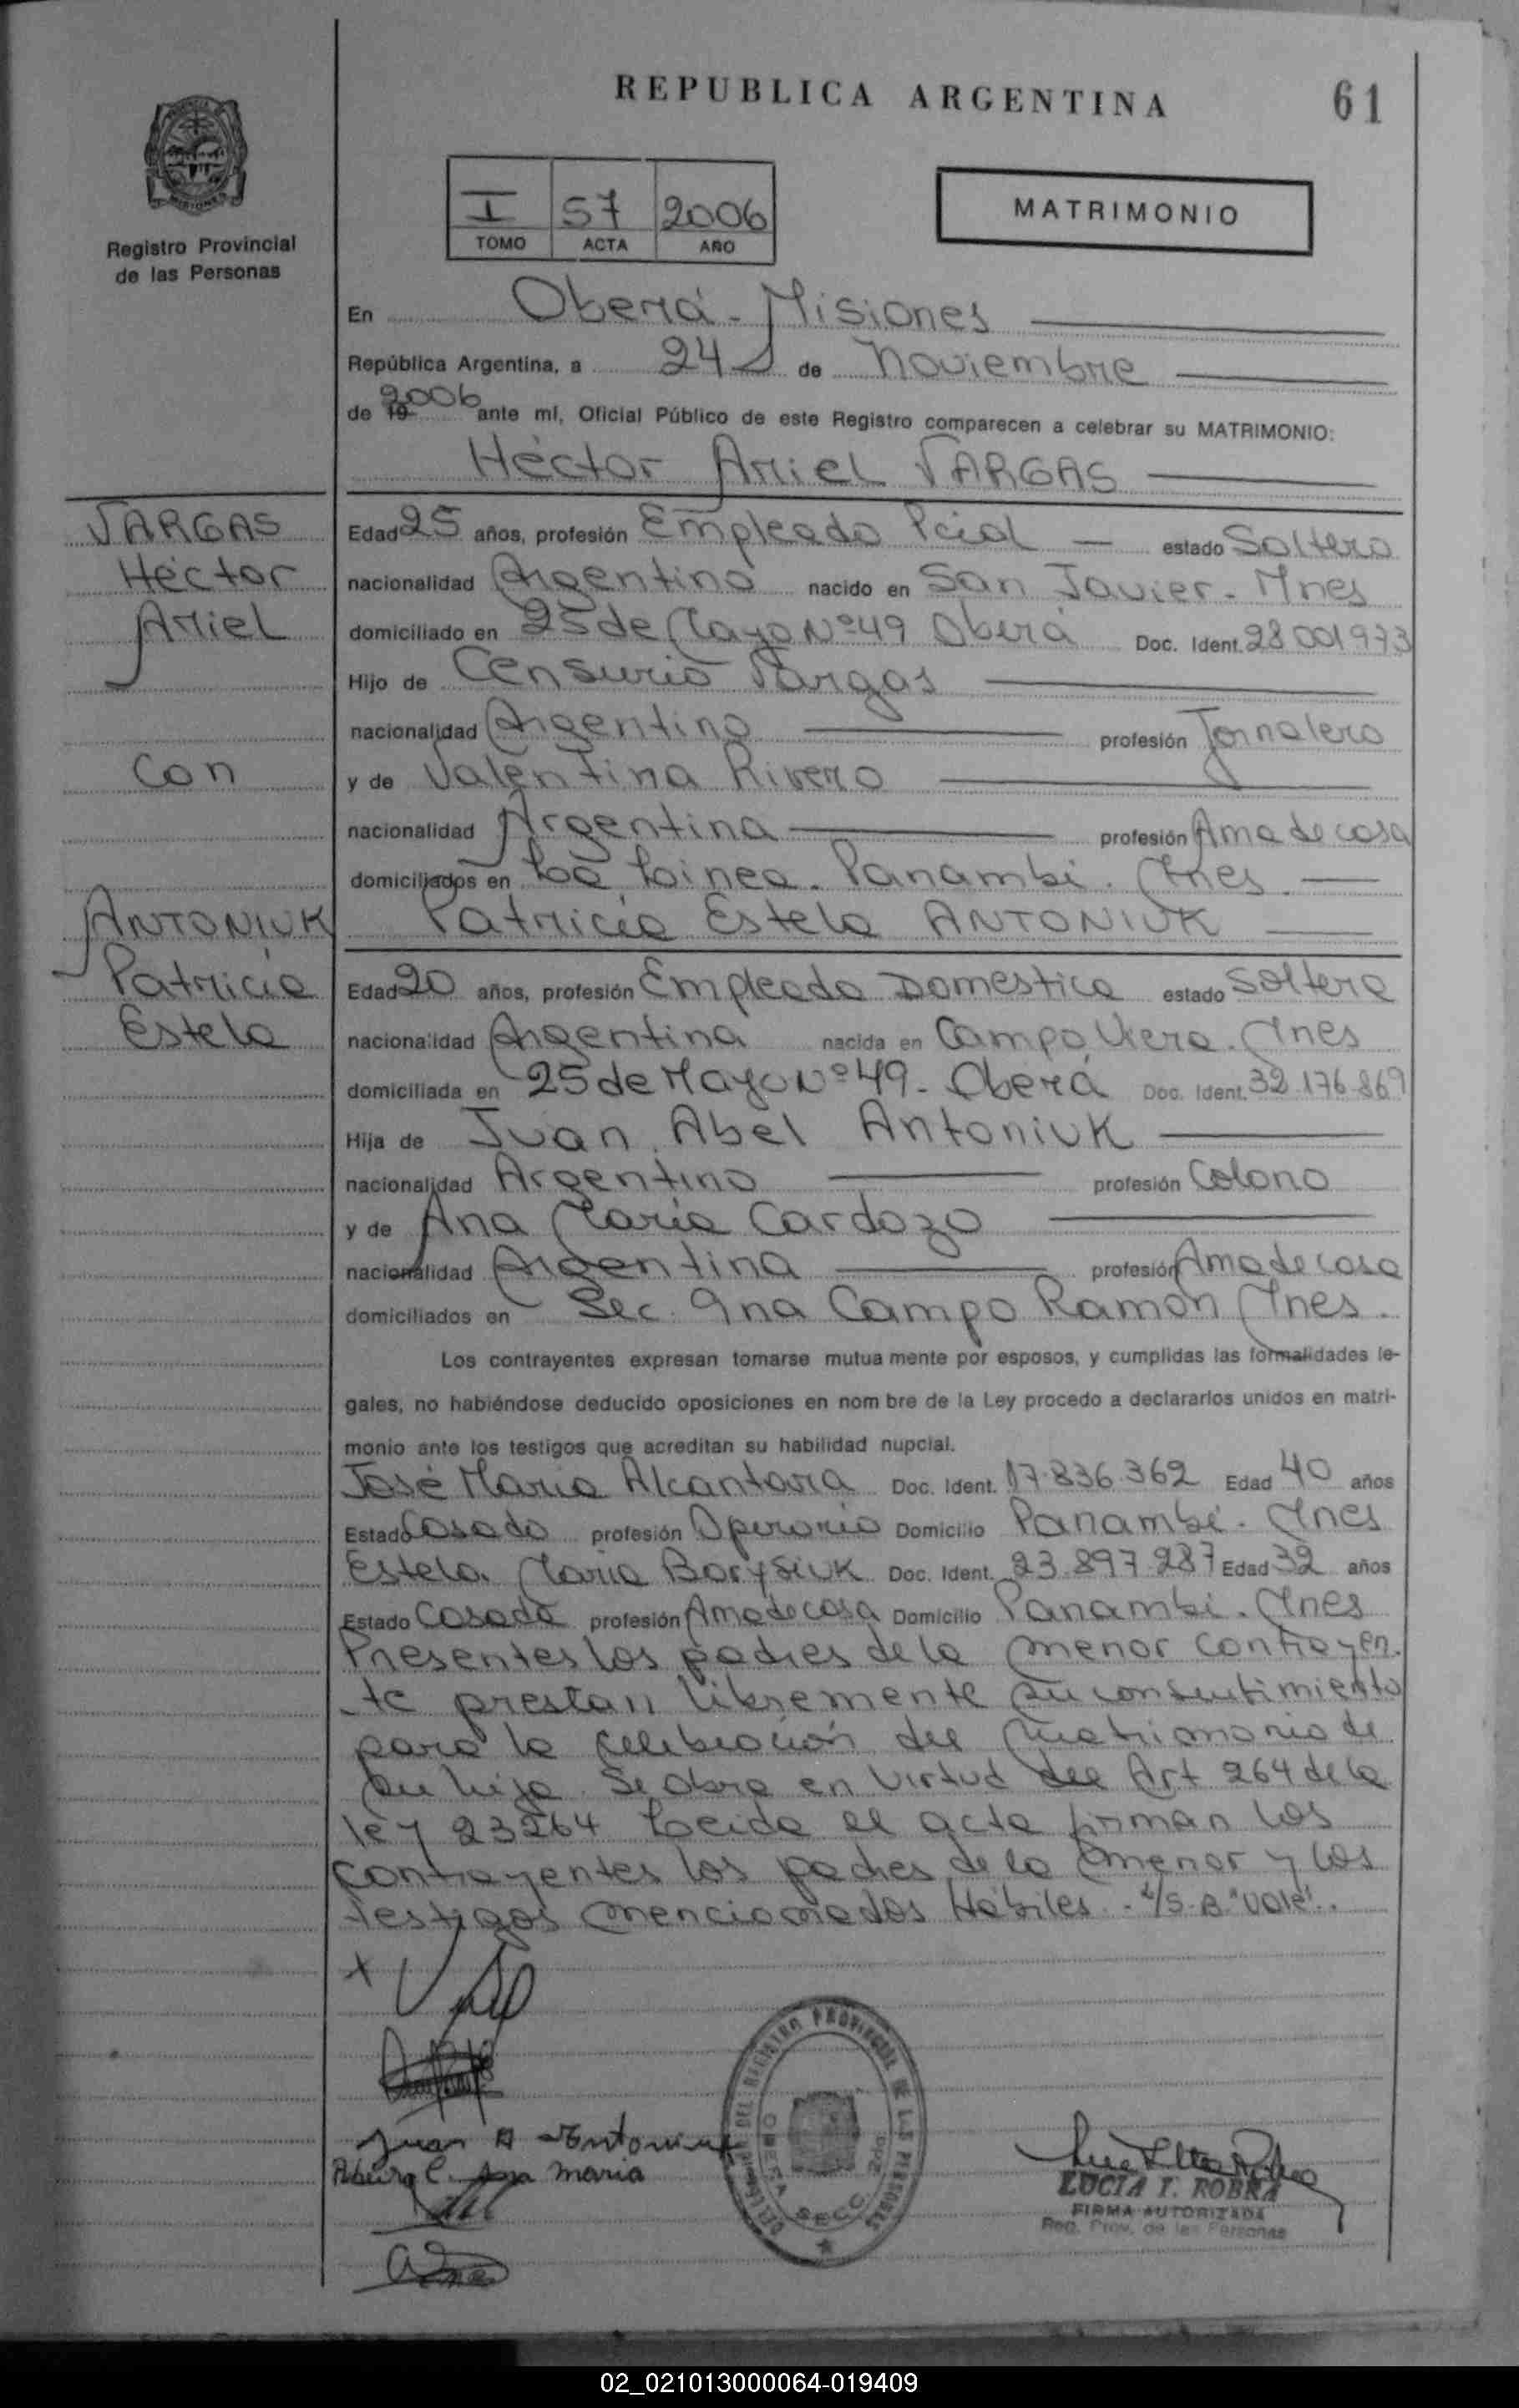 REPUBLICA ARGENTINA
61
Registro Provincial
de las Personas
I 57 2006
TOMO ACTA AÑO
MATRIMONIO
En Oberá - Misiones
República Argentina, a 24 de Noviembre
de 19 2006 ante mí, Oficial Público de este Registro comparecen a celebrar su MATRIMONIO:
Héctor Ariel VARGAS
VARGAS
Héctor
Ariel
Con
ANTONIUK
Patricia
Estela
Edad 25 años, profesión Empleado Pcial - estado Soltero
nacionalidad Argentino nacido en San Javier - Mnes
domiciliado en 25 de Mayo Nº 49 Oberá Doc. Ident. 28 001973
Hijo de Censurio Vargas
nacionalidad Argentino profesión Jornalero
y de Valentina Rivero
nacionalidad Argentina profesión Ama de casa
domiciliados en La Linea. Panambi. Mnes.
Patricia Estela ANTONIUK
Edad 20 años, profesión Empleada Domestica estado Soltera
nacionalidad Argentina nacida en Campo Viera. Mnes
domiciliada en 25 de Mayo Nº 49 - Oberá Doc. Ident. 32.176.869
Hija de Juan Abel Antoniuk
nacionalidad Argentino profesión Colono
y de Ana Maria Cardozo
nacionalidad Argentina profesión Ama de casa
domiciliados en Sec. 9na Campo Ramón Mnes.
Los contrayentes expresan tomarse mutua mente por esposos, y cumplidas las formalidades le-
gales, no habiéndose deducido oposiciones en nom bre de la Ley procedo a declararlos unidos en matri-
monio ante los testigos que acreditan su habilidad nupcial.
José Maria Alcantara Doc. Ident. 17.836.362 Edad 40 años
Estado Casado profesión Operario Domicilio Panambi - Mnes
Estela Maria Borysiuk Doc. Ident. 23.897.287 Edad 32 años
Estado Casada profesión Ama de casa Domicilio Panambi. Mnes
Presentes los padres de la menor contrayen-
te prestan libremente su consentimiento
para la celebración del matrimonio de
su hija. Se obra en virtud del Art 264 de la
ley 23264 Leida el acta firman los
contrayentes los padres de la menor y los
testigos mencionados Hábiles. - "/S.B. "Vale".
x
Juan A Antoniuk
Ana Maria
DELEGACION DEL REGISTRO PROVINCIAL DE LAS PERSONAS
OBERA SECC.
LUCIA I. ROBRA
FIRMA AUTORIZADA
Reg. Prov. de las Personas
02_021013000064-019409